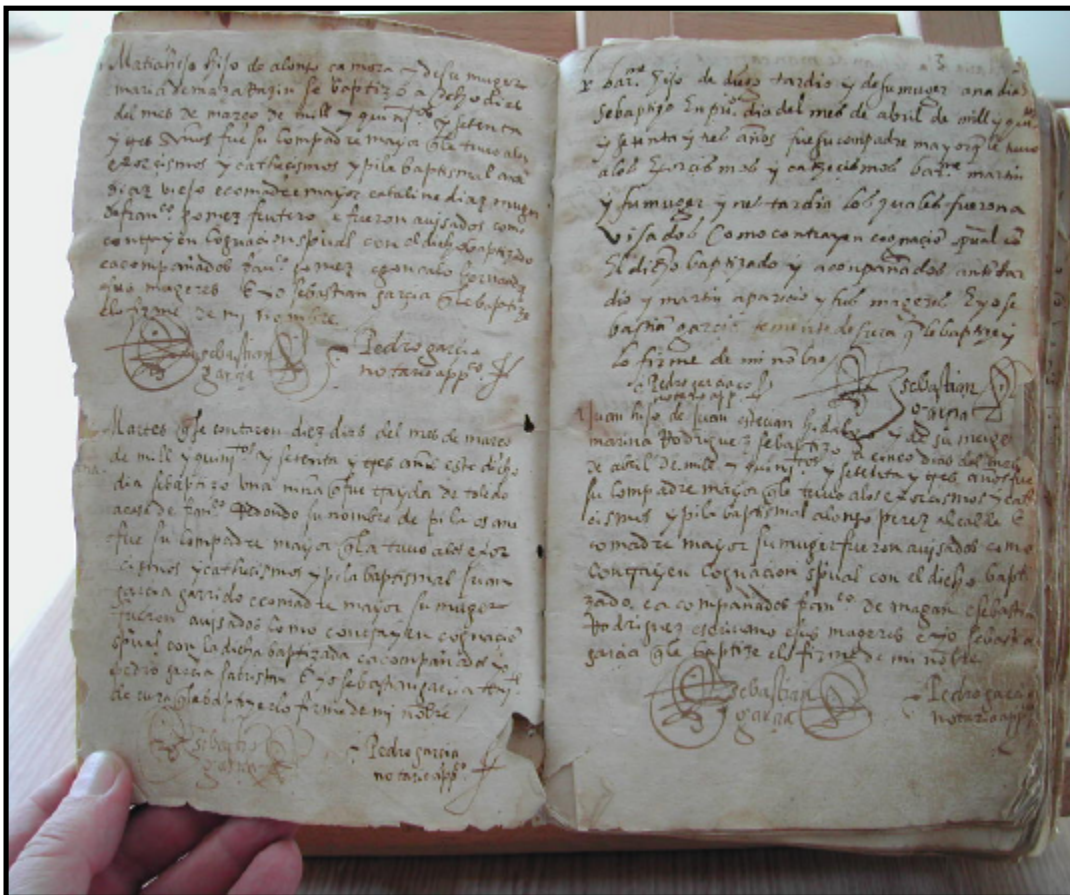 hijo de alonso çamora y de su muger
maria de se baptizo a ocho dias
del mes de março de mill y quinitos y setenta
y tres años fue su compadre mayor q le tuvo a los
exorcismos y cathecismos y pila baptismal
diaz viejo e comadre mayor catalina diaz muger
de franco gomez frutero e fueron avisados como
contrayen cognacion spual con el dicho baptizado
e acompañados franco gomez e gonçalo
sus mageres E yo sebastian garcia q le baptize
e lo firme de mi nombre
sebastian
garcia
Pedro garcia
notario appco
Martes q se contaron diez dias del mes de março
de mill y quinitos y setenta y tres años este dicho
dia se baptizo una niña q fue trayda de toledo
a casa de franco Redondo su nombre de pila es ana
fue su compadre mayor q la tuvo a los exor
cismos y cathecismos y pila baptismal Juan
garcia garrido e comadre mayor su muger
fueron avisados como contrayen cognacio
spual con la dicha baptizada e acompañados
pedro garcia sacristan E yo sebastian garcia
de cura q le baptize e lo firme de mi nõbre
sebastian
garcia
Pedro garcia
notario appco
barme hijo de diego tardio y de su muger ana dia
se baptizo En pro dia del mes de abril de mill y
y setenta y tres años fue su compadre mayor q le tuvo
a los Exorcismos y catecismos barme martin
y su muger ynes tardia los quales fueron a
visados Como contrayen cognacio spual cõ
El dicho baptizado y acompañados antõ tar
dio y martin aparicio y sus mageres E yo se
bastiã garcia teniente de cura q le baptize y
lo firme de mi nõbre
Pedro garcia
notario app
sebastian
garcia
Juan hijo de Juan estevan hidalgo y de su muger
marina Rodriguez se baptizo a cinco dias del mes
de abril de mill y quinitos y setenta y tres años fue
su compadre mayor q le tuvo a los exorcismos y cate
cismos y pila baptismal alonso perez alcalde E
comadre mayor su muger fueron avisados como
contrayen cognacion spual con el dicho bapti
zado. e acompañados franco de magan e sebastia
Rodriguez escrivano e sus mageres e yo sebastia
garcia q le baptize e lo firme de mi nõbre
sebastian
garcia
Pedro garcia
notario appco